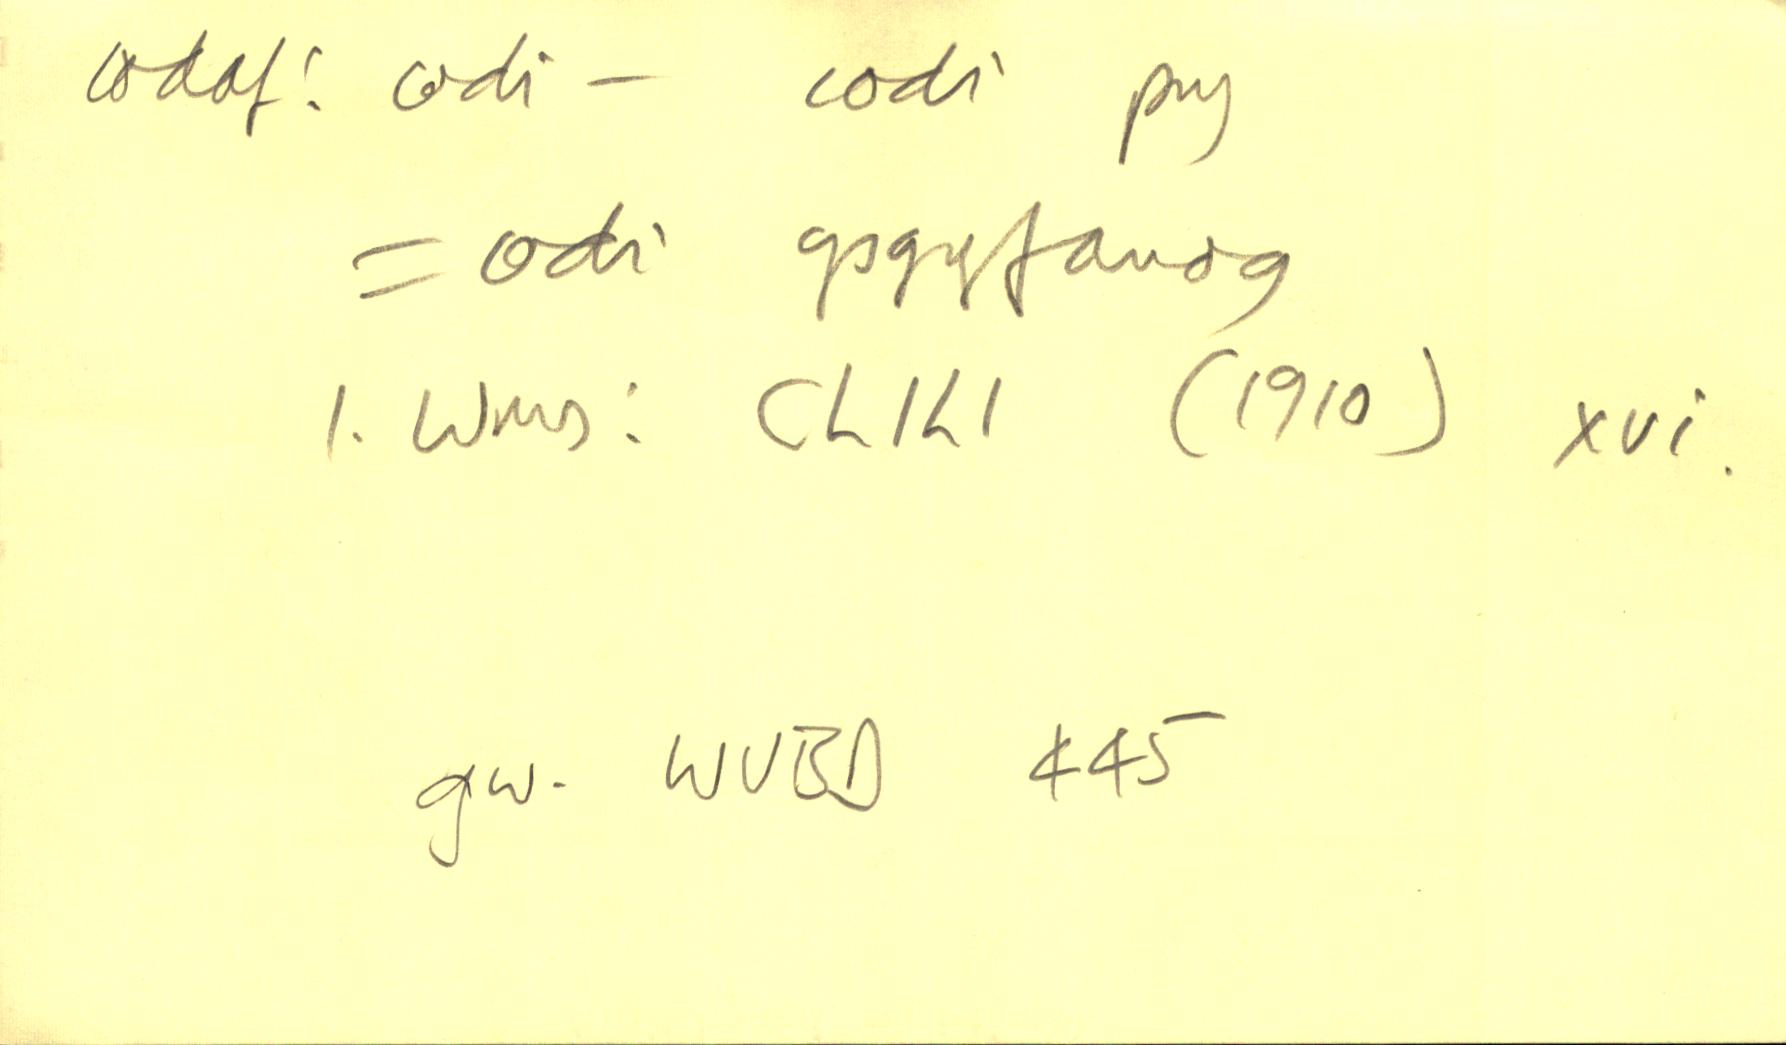 codaf: codi — codi pwy
= codi ysgyfarnog
I. Wms: CLlLl (1910) xvi.
gw. WVBD 445